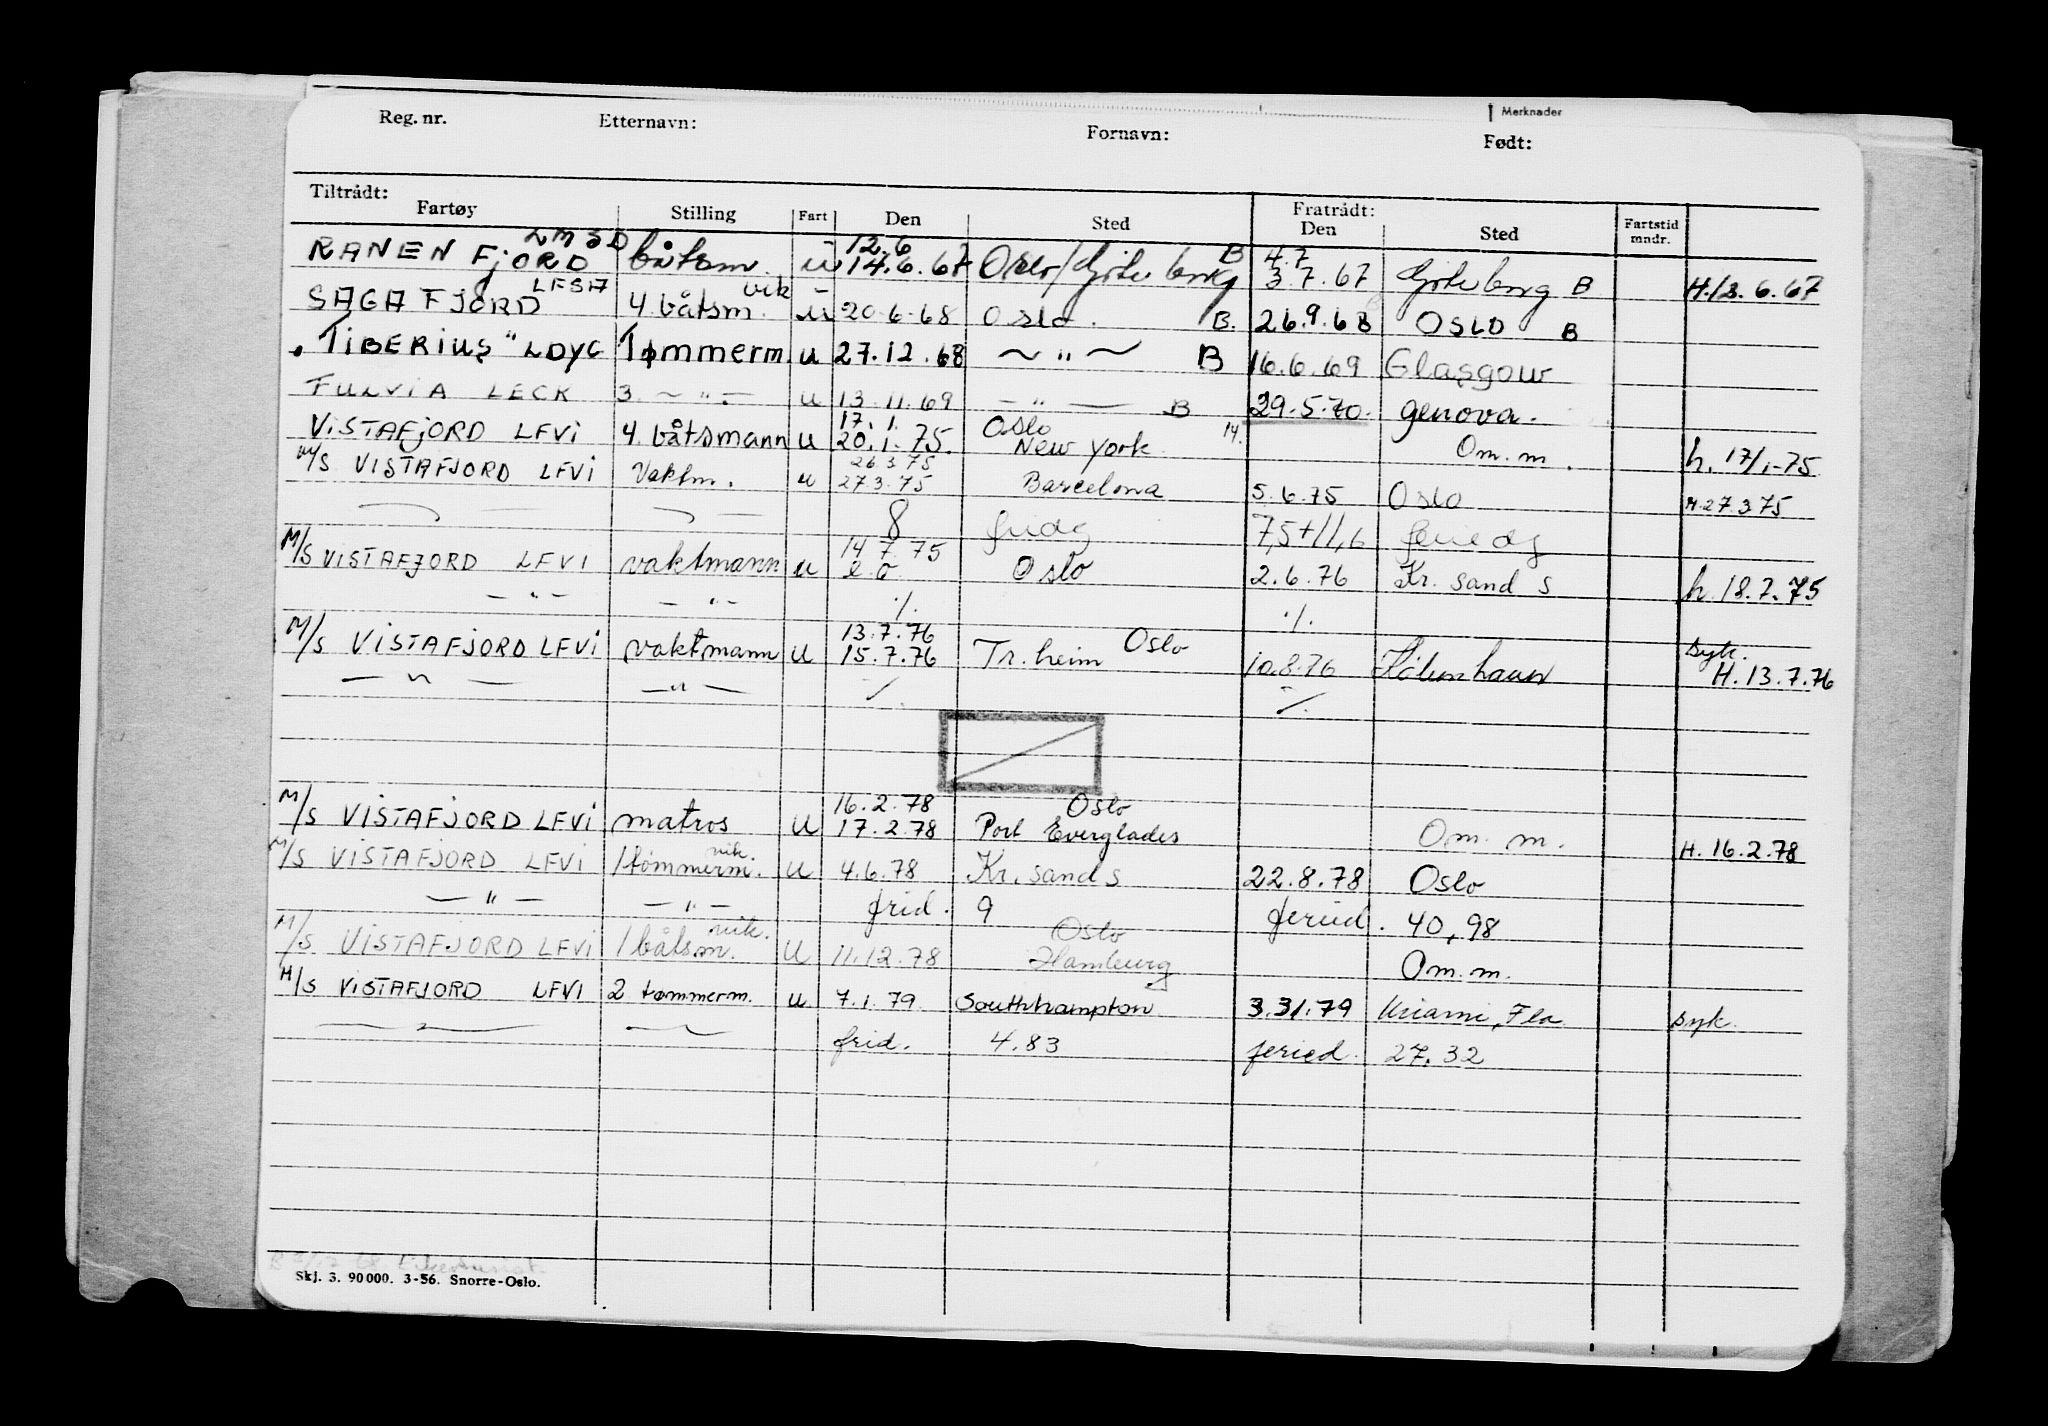 Merknader
Reg. nr. Etternavn: Fornavn: Født:
Tiltrådt: Fratrådt:
Fartøy Stilling Fart Den Sted Den Sted Fartstid mndr.
LMSD 12.6 B 4.7
RANENFJORD båtsm. u 14.6.67 Oslo/Göteborg 3.7.67 Göteborg B H.13.6.67
LFSA vik
SAGAFJORD 4 båtsm. u 20.6.68 Oslo. B. 26.9.68 OSLO B
"TIBERIUS" LDYG Tømmerm. u 27.12.68 — " — B 16.6.69 Glasgow
FULVIA LECK 3. — " — u 13.11.69 — " — B 29.5.70. genova.
17.1. Oslo 14.
VISTAFJORD LFVI 4. båtsmann u 20.1.75. New York Om.m. h. 17/1-75
26.3.75
M/S VISTAFJORD LFVI Vaktm. u 27.3.75 Barcelona 5.6.75 Oslo H.27.3.75
— — 8 fridg 7,5+11,6 feriedg
14.7.75
M/S VISTAFJORD LFVI vaktmann u e.o. Oslo 2.6.76 Kr. sand S h. 18.7.75
— " — — " — ./. ./.
13.7.76 Oslo syk.
M/S VISTAFJORD LFVI vaktmann u 15.7.76 Tr.heim 10.8.76 København H. 13.7.76
— " — — " — ./. ./.
16.2.78 Oslo
M/S VISTAFJORD LFVI matros u 17.2.78 Port Everglades Om. m. H. 16.2.78
vik.
M/S VISTAFJORD LFVI 1 tømmerm. u 4.6.78 Kr. sand S 22.8.78 Oslo
— " — — " — frid. 9 feried. 40,98
vik. Oslo
M/S VISTAFJORD LFVI 1 båtsm. u 11.12.78 Hamburg Om.m.
M/S VISTAFJORD LFVI 2 tømmerm. u 7.1.79. Southhampton 3.31.79 Miami, Fla. syk.
— — frid. 4.83 feried. 27.32
Skj. 3. 90000. 3-56. Snorre-Oslo.